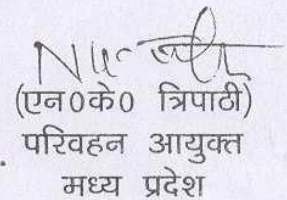 (एन0के0 त्रिपाठी)
परिवहन आयुक्त
मध्य प्रदेश